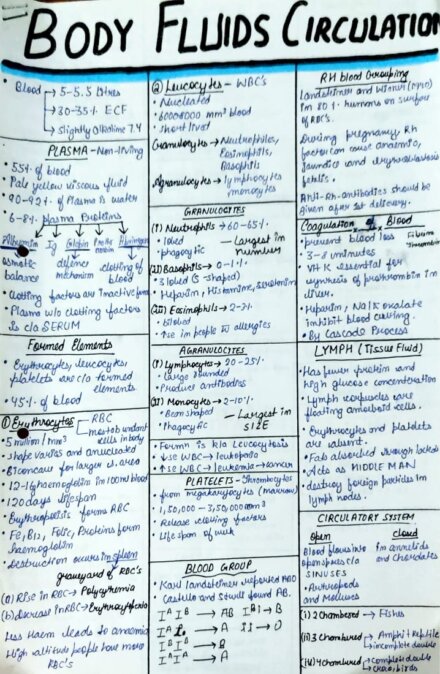 BODY FLUIDS CIRCULATION
• Blood → 5-5.5 litres
→ 30-35% ECF
→ slightly Alkaline 7.4
PLASMA - Non-living
• 55% of blood
• Pale yellow viscous fluid
• 90-92% of Plasma is water
• 6-8% plasma Proteins
Albumin Ig Globin Fibrinogen
osmotic balance
defence mechanism
clotting of blood
• Clotting factors are inactive form
• Plasma w/o clotting factors
is c/a SERUM
Formed Elements
• Erythrocytes, leucocytes
platelets are c/a formed
elements
• 45% of blood
① Erythrocytes
RBC
most abundant
cells in body
• 5 million / mm³
• shape varies and anucleated
• Biconcave for larger s. area
• 12-16 haemoglobin in 100ml blood
• 120 days lifespan
• Erythropoiesis forms RBC
• Fe, B12, Folic, Proteins form
haemoglobin
• Destruction occurs in spleen
graveyard of RBC's
(a) Rise in RBC → Polycythemia
(b) decrease in RBC → Erythrocytopenia
Less Haem leads to anaemia
High altitude people have more
RBC's
② Leucocytes - WBC's
• Nucleated
• 6000-8000 mm³ blood
• short lived
Granulocytes → Neutrophiles,
Eosinophiles,
Basophils
Agranulocytes → lymphocytes
monocytes
GRANULOCYTES
(i) Neutrophils → 60-65%
• lobed
• phagocytic
Largest in
number
(ii) Basophils → 0-1%
• 3 lobed (S-shaped)
• Heparin, Histamine, Serotonin
(iii) Eosinophils → 2-3%
• bilobed
• ↑se in people w allergies
AGRANULOCYTES
(i) Lymphocytes → 20-25%
• Large rounded
• Product antibodies
(ii) Monocytes → 2-10%
• Bean shaped
• Phagocytic
Largest in
SIZE
• Formn is k/a Leucocytosis
• ↓se WBC → leukopenia
• ↑se WBC → leukemia → cancer
PLATELETS - Thrombocytes
• from megakaryocytes (marrow)
• 1,50,000 - 3,50,000 mm³
• Release clotting factors
• Life span of week
BLOOD GROUP
• Karl landsteiner reported ABO
• Castello and Sturli found AB.
Iᴬ Iᴮ → AB
Iᴮ i → B
i i → O
Iᴮ Iᴮ → B
Iᴬ Iᴬ → A
RH blood Grouping
Landsteiner and Wiener (1940)
in 80% humans on surface
of RBC's.
During pregnancy, Rh
factor can cause anaemia,
jaundice and erythroblastosis
fetalis.
Anti-Rh-antibodies should be
given after 1st delivery.
Coagulation of Blood
• prevent blood loss
• 3-8 minutes
• Vit K essential for
synthesis of prothrombin in
liver.
• Heparin, Na/K oxalate
inhibit blood clotting.
• By Cascade Process
LYMPH (Tissue Fluid)
• Has fewer protein and
high glucose concentration
• Lymph corpuscles are
floating amoeboid cells.
• Erythrocytes and platelets
are absent.
• Fab absorbed through lacteals
• Acts as MIDDLE MAN
• destroy foreign particles in
lymph nodes.
CIRCULATORY SYSTEM
Open
Blood flows into
open spaces c/a
SINUSES
• Arthropods
and Molluscs
cloud
in annelids
and chordates
(i) 2 Chambered → Fishes
(ii) 3 Chambered → Amphi & Reptile
→ incomplete double
(iii) 4 Chambered → complete double